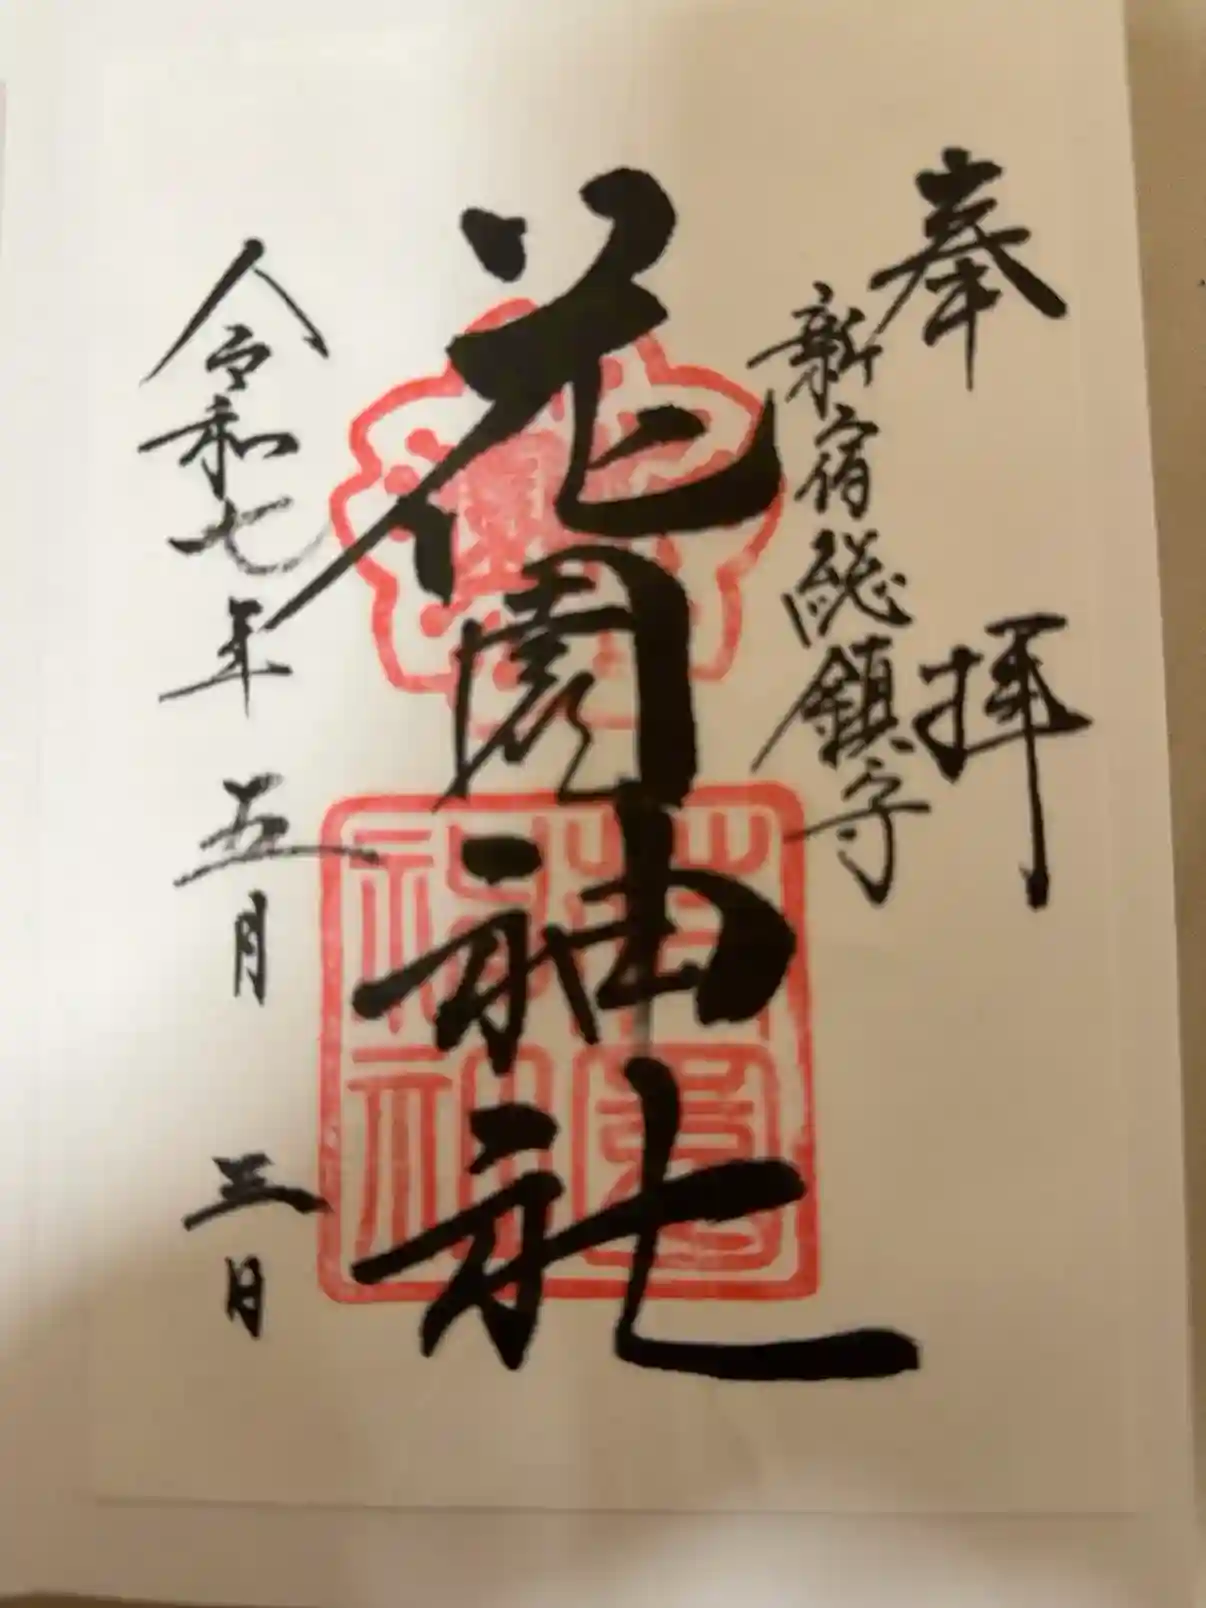 奉拝
新宿総鎮守
花園神社
令和七年五月三日